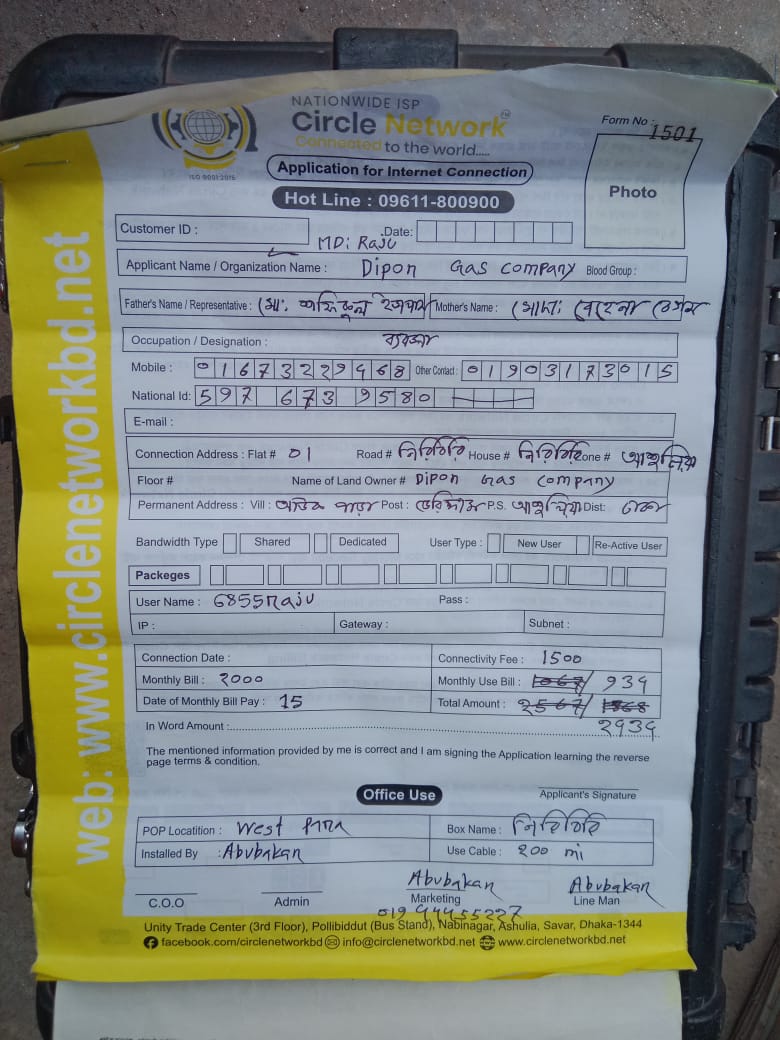 NATIONWIDE ISP
Circle Network
Connected to the world.....
ISO 9001:2015
Form No : 1501
Application for Internet Connection
Hot Line : 09611-800900
Photo
Customer ID :
Date:
MD: Raju
Applicant Name / Organization Name : Dipon Gas Company Blood Group :
Father's Name / Representative : মো: Mother's Name :
Occupation / Designation : ব্যবসা
Mobile : 01673229468 Other Contact : 01903173015
National Id: 597 673 9580
E-mail :
Connection Address : Flat # 01 Road # নিরিবিরি House # নিরিবিরি Zone # আশুলিয়া
Floor # Name of Land Owner # Dipon Gas company
Permanent Address : Vill : পাড়া Post : P.S. আশুলিয়া Dist: ঢাকা
Bandwidth Type Shared Dedicated User Type : New User Re-Active User
Packeges
User Name : 6855raju Pass :
IP : Gateway : Subnet :
Connection Date : Connectivity Fee : 1500
Monthly Bill : 2000 Monthly Use Bill : 934
Date of Monthly Bill Pay : 15 Total Amount :
In Word Amount : 2434
The mentioned information provided by me is correct and I am signing the Application learning the reverse
page terms & condition.
Office Use
Applicant's Signature
POP Locatition : West Para Box Name : নিরিবিরি
Installed By : Abubakar Use Cable : 200 mi
Abubakar Abubakar
C.O.O Admin Marketing Line Man
Unity Trade Center (3rd Floor), Pollibiddut (Bus Stand), Nabinagar, Ashulia, Savar, Dhaka-1344
facebook.com/circlenetworkbd info@circlenetworkbd.net www.circlenetworkbd.net
web: www.circlenetworkbd.net